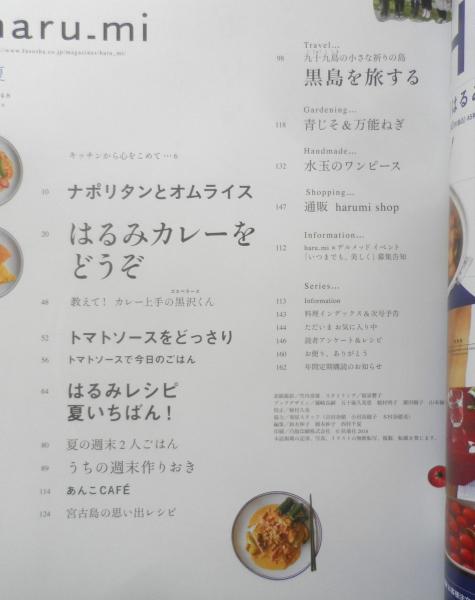 haru_mi
www.fusosha.co.jp/magazines/haru_mi/
夏
キッチンから心をこめて …6
10 ナポリタンとオムライス
20 はるみカレーを
どうぞ
48 教えて! カレー上手の黒沢くん
52 トマトソースをどっさり
56 トマトソースで今日のごはん
64 はるみレシピ
夏いちばん!
80 夏の週末2人ごはん
89 うちの週末作りおき
114 あんこCAFÉ
124 宮古島の思い出レシピ
Travel…
98 九十九島の小さな祈りの島
黒島を旅する
Gardening…
118 青じそ&万能ねぎ
Handmade…
132 水玉のワンピース
Shopping…
147 通販 harumi shop
Information…
112 haru_mi×デルメッド イベント
「いつまでも、美しく」募集告知
Series…
113 Information
143 料理インデックス&次号予告
144 ただいま お気に入り中
146 読者アンケート&レシピ
160 お便り、ありがとう
162 年間定期購読のお知らせ
本誌掲載の記事、写真、イラストの無断転写、複製、転載を禁じます。